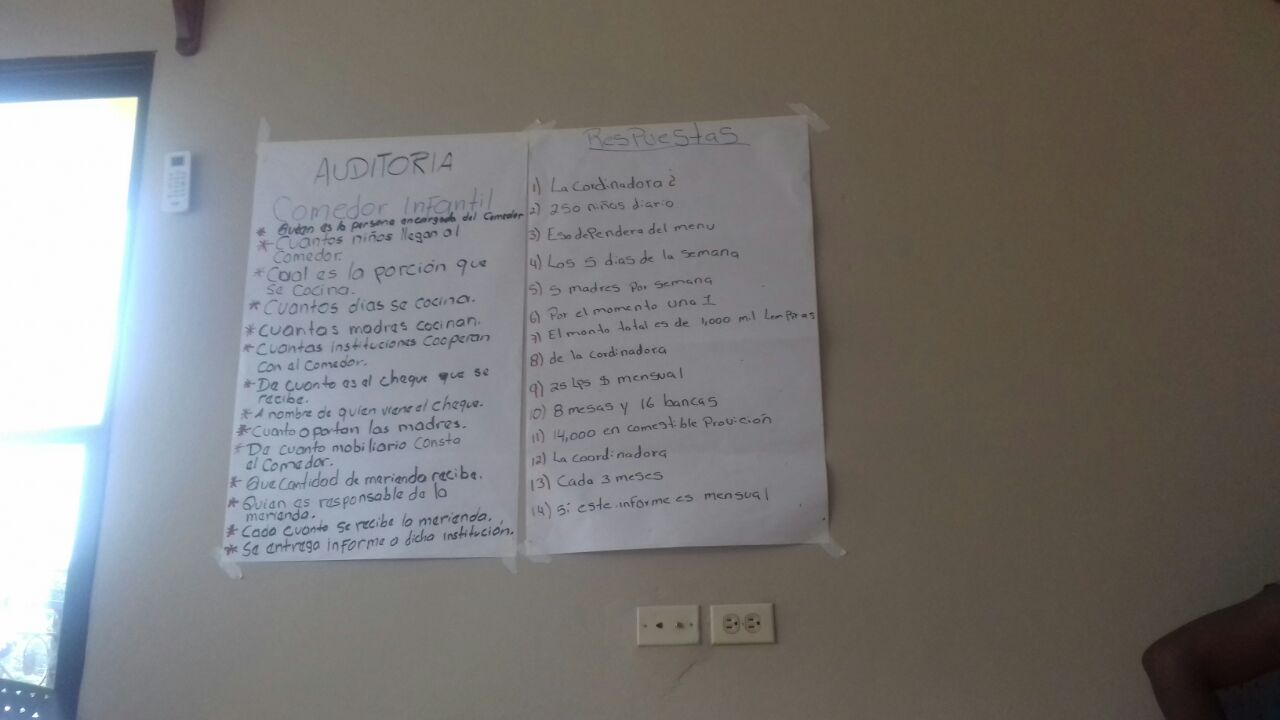 AUDITORIA
Comedor Infantil
* Quien es la persona encargada del Comedor
* Cuantos niños llegan al
Comedor.
* Cual es la porción que
se cocina.
* Cuantos dias se cocina.
* Cuantas madres cocinan.
* Cuantas instituciones Cooperan
con el Comedor.
* De cuanto es el cheque que se
recibe.
* A nombre de quien viene el cheque.
* Cuanto aportan las madres.
* De cuanto mobiliario Consta
el Comedor.
* Que Cantidad de merienda recibe.
* Quien es responsable de la
merienda.
* Cada cuanto se recibe la merienda.
* Se entrega informe a dicha institución.
Respuestas
1) La Cordinadora
2) 250 niños diario
3) Eso dependera del menu
4) Los 5 dias de la semana
5) 5 madres por semana
6) Por el momento una 1
7) El monto total es de 1,000 mil Lempiras
8) de la Cordinadora
9) 25 Lps $ mensual
10) 8 mesas y 16 bancas
11) 14,000 en comestible Provición
12) La Coordinadora
13) Cada 3 meses
14) Si este informe es mensual